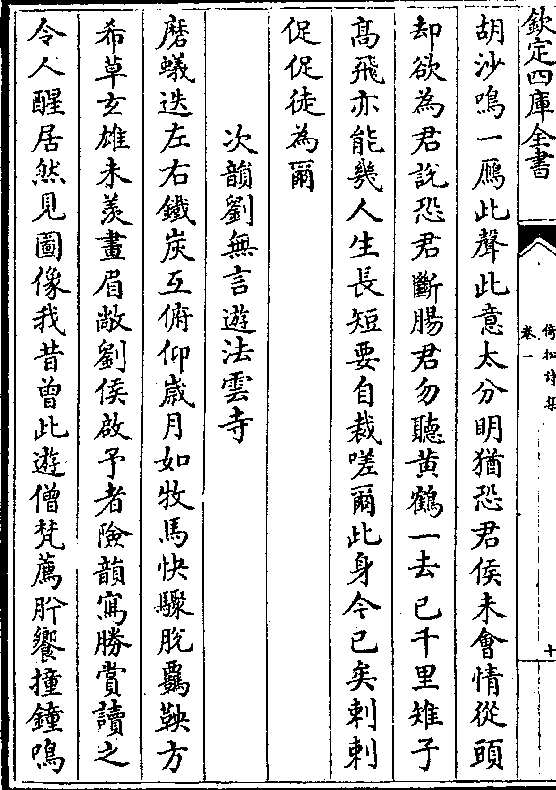 欽定四庫全書
倚松詩集
卷一
十
胡沙鳴一鴈此聲此意太分明猶恐君侯未會情從頭
却欲為君說恐君斷腸君勿聽黄鶴一去已千里雉子
髙飛亦能幾人生長短要自裁嗟爾此身今已矣刺刺
促促徒為爾
次韻劉無言遊法雲寺
磨蟻迭左右鐵炭互俯仰嵗月如牧馬快驟脫覊鞅方
希草玄雄未羨畫眉敞劉侯啟予者險韻寫勝賞讀之
令人醒居然見圖像我昔曾此遊僧梵薦肸饗撞鐘鳴